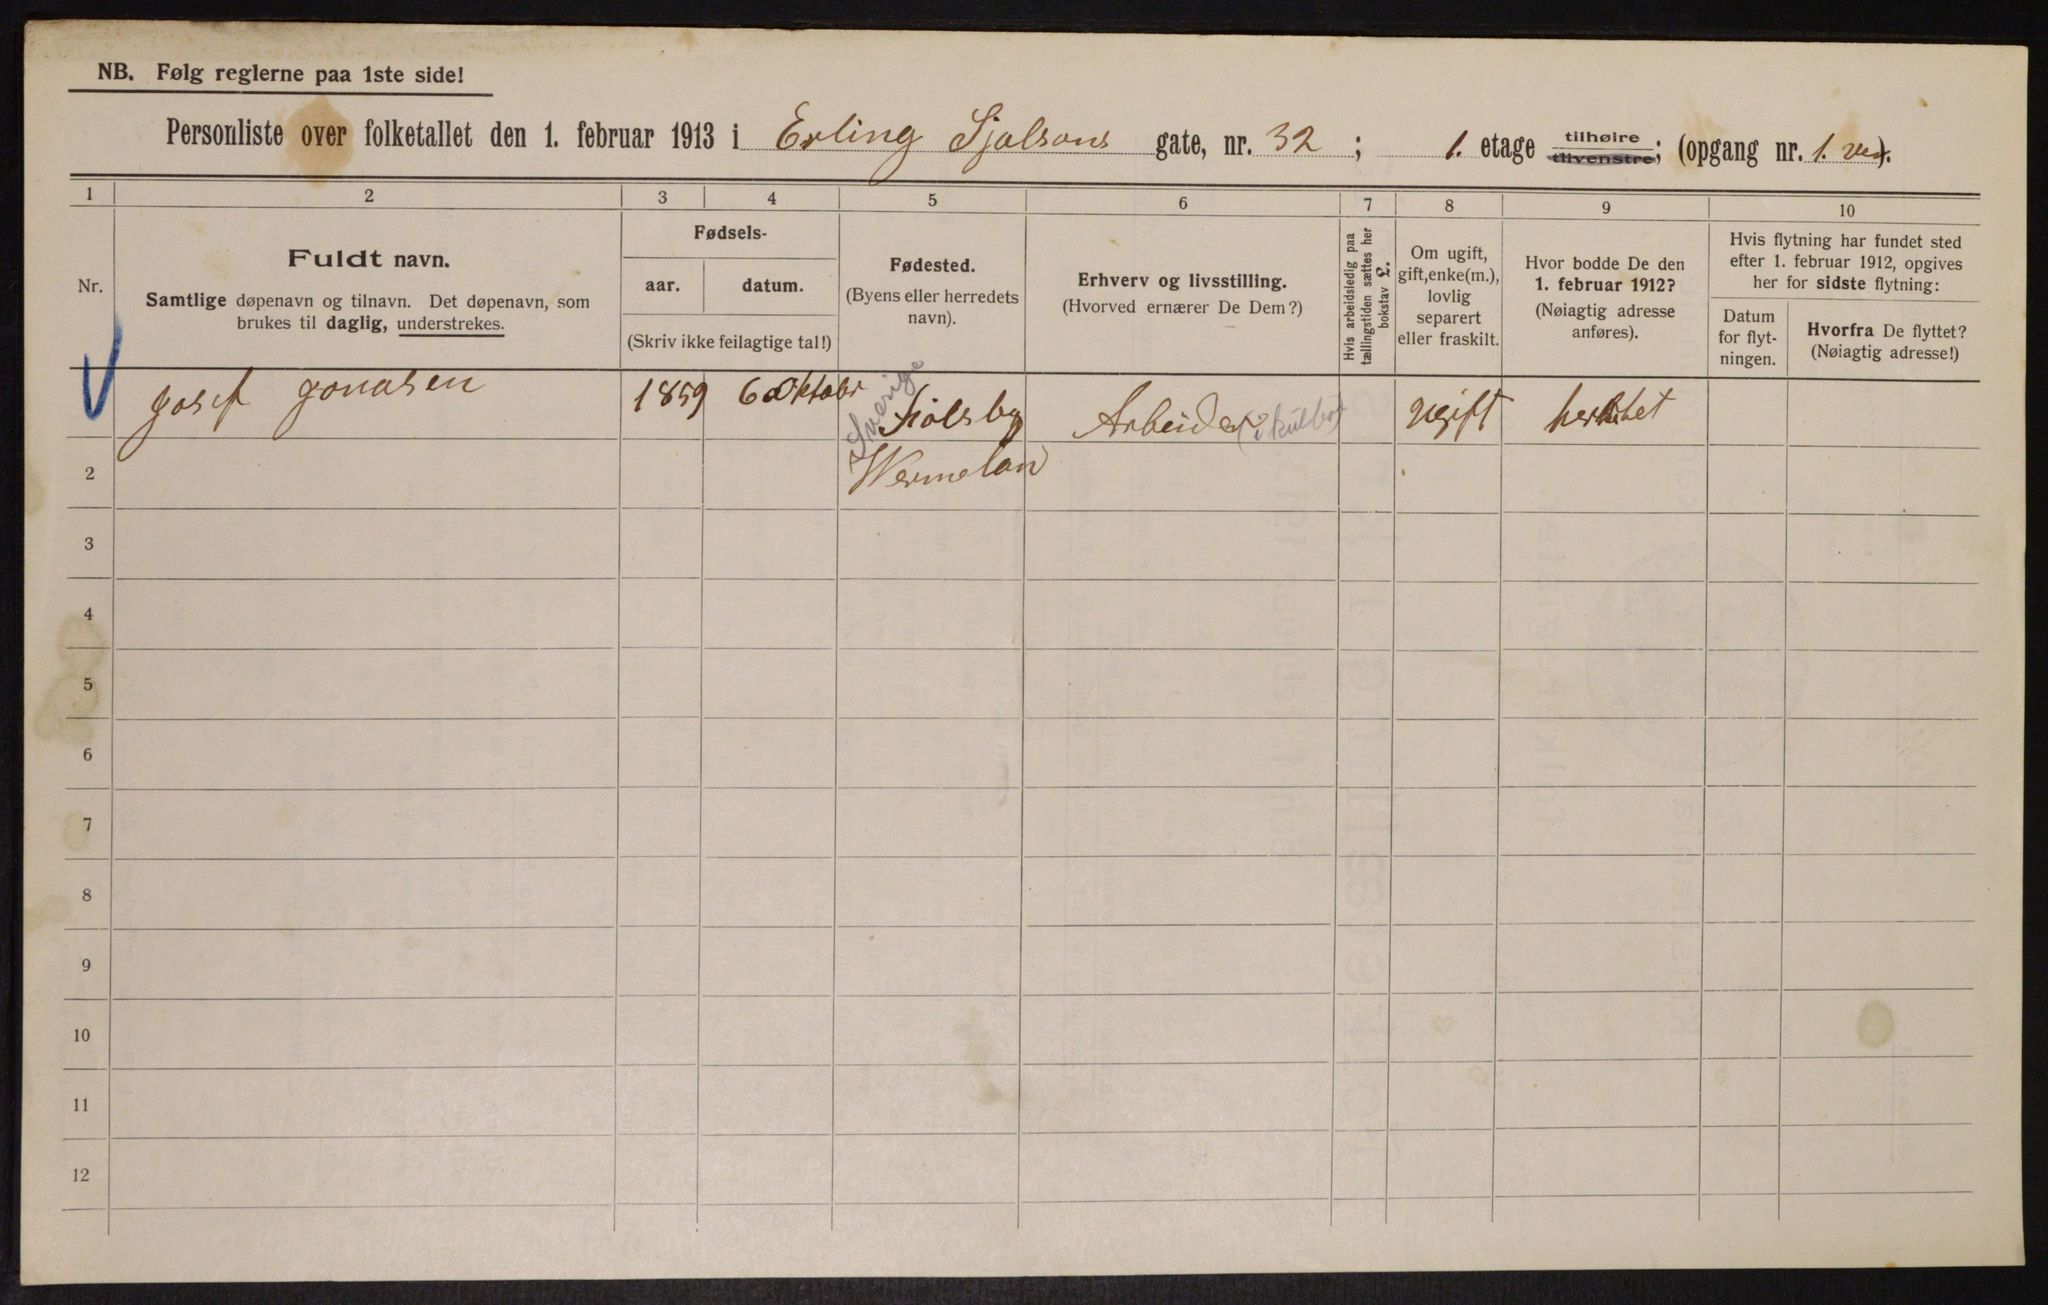 NB. Følg reglerne paa 1ste side!
Personliste over folketallet den 1. februar 1913 i Erling Sjalsons gate, nr. 32 ; 1. etage tilhøire tilvenstre; (opgang nr. 1. ).
1 2 3 4 5 6 7 8 9 10
Nr.
Fuldt navn.
Samtlige døpenavn og tilnavn. Det døpenavn, som
brukes til daglig, understrekes.
Fødsels-
aar. datum.
(Skriv ikke feilagtige tal!)
Fødested.
(Byens eller herredets
navn).
Erhverv og livsstilling.
(Hvorved ernærer De Dem?)
Hvis arbeidsledig paa
tællingstiden sættes her
bokstav £.
Om ugift,
gift, enke(m.),
lovlig
separert
eller fraskilt.
Hvor bodde De den
1. februar 1912?
(Nøiagtig adresse
anføres).
Hvis flytning har fundet sted
efter 1. februar 1912, opgives
her for sidste flytning:
Datum
for flyt-
ningen.
Hvorfra De flyttet?
(Nøiagtig adresse!)
Josef Jonasen 1859 6 Oktobr Sverige Arbeider ugift
Wermelan
2
3
4
5
6
7
8
9
10
11
12